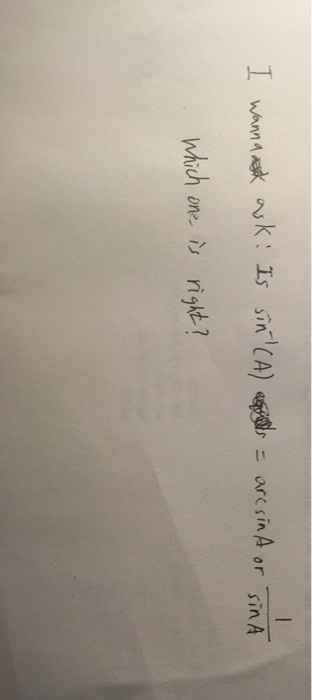 I wanna ask: Is sin⁻¹(A) = arcsin A or 1/sin A
Which one is right?